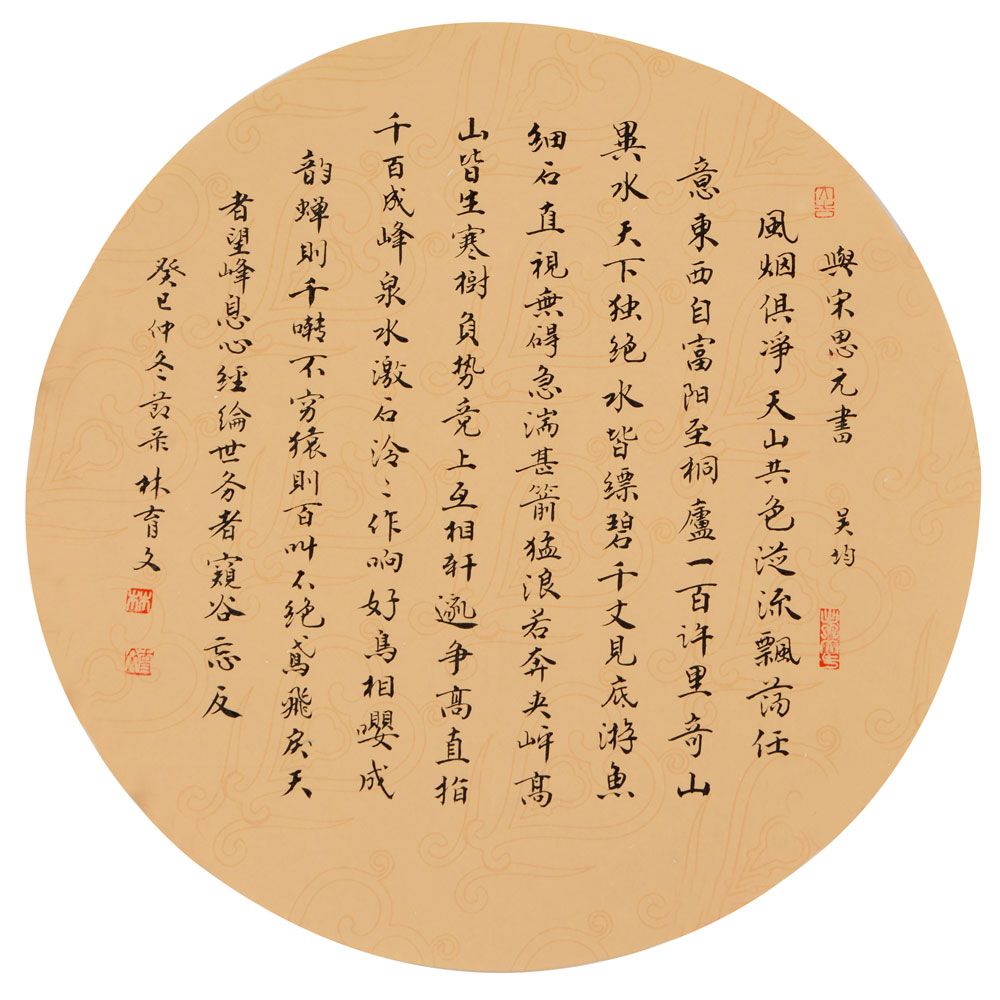 與宋思元書 吴均
風烟俱凈天山共色從流飄蕩任
意東西自富阳至桐廬一百许里奇山
異水天下独绝水皆缥碧千丈見底游魚
细石直視無碍急湍甚箭猛浪若奔夹岸高
山皆生寒樹負势竞上互相轩邈争高直指
千百成峰泉水激石泠々作响好鳥相嚶成
韵蝉则千啭不穷猿则百叫不绝鳶飛戾天
者望峰息心經綸世务者窺谷忘反
癸巳仲冬 林育文
林